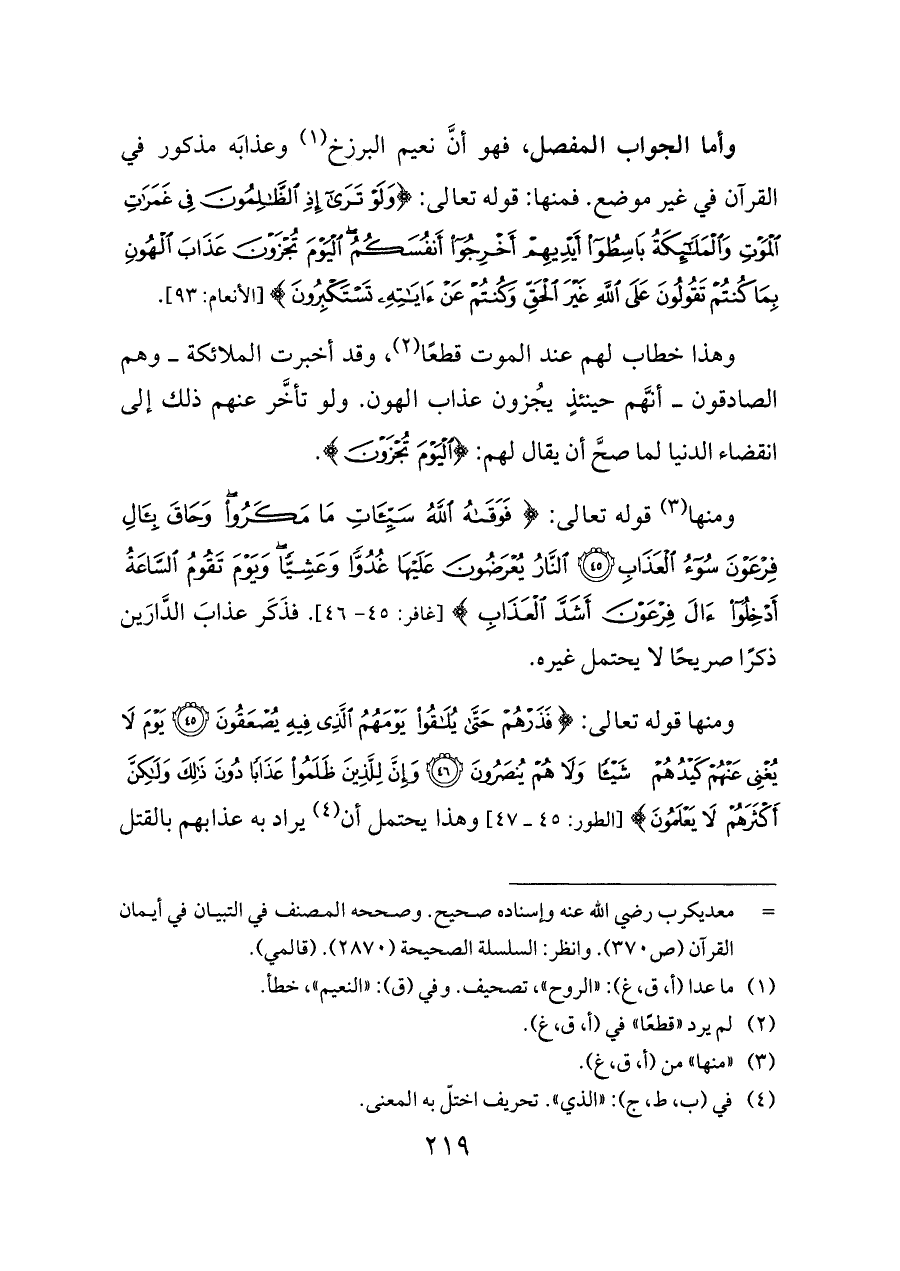 وأما الجواب المفصل، فهو أنَّ نعيم البرزخ(١) وعذابَه مذكور في
القرآن في غير موضع. فمنها: قوله تعالى: ﴿وَلَوْ تَرَىٰٓ إِذِ ٱلظَّٰلِمُونَ فِى غَمَرَٰتِ
ٱلْمَوْتِ وَٱلْمَلَٰٓئِكَةُ بَاسِطُوٓا۟ أَيْدِيهِمْ أَخْرِجُوٓا۟ أَنفُسَكُمُ ۖ ٱلْيَوْمَ تُجْزَوْنَ عَذَابَ ٱلْهُونِ
بِمَا كُنتُمْ تَقُولُونَ عَلَى ٱللَّهِ غَيْرَ ٱلْحَقِّ وَكُنتُمْ عَنْ ءَايَٰتِهِۦ تَسْتَكْبِرُونَ ﴾ [الأنعام: ٩٣].
وهذا خطاب لهم عند الموت قطعًا(٢)، وقد أخبرت الملائكة ـ وهم
الصادقون ـ أنهَّم حينئذٍ يجُزون عذاب الهون. ولو تأخَّر عنهم ذلك إلى
انقضاء الدنيا لما صحَّ أن يقال لهم: ﴿ٱلْيَوْمَ تُجْزَوْنَ ﴾.
ومنها(٣) قوله تعالى: ﴿ فَوَقَىٰهُ ٱللَّهُ سَيِّـَٔاتِ مَا مَكَرُوا۟ ۖ وَحَاقَ بِـَٔالِ
فِرْعَوْنَ سُوٓءُ ٱلْعَذَابِ ۝٤٥ ٱلنَّارُ يُعْرَضُونَ عَلَيْهَا غُدُوًّا وَعَشِيًّا ۖ وَيَوْمَ تَقُومُ ٱلسَّاعَةُ
أَدْخِلُوٓا۟ ءَالَ فِرْعَوْنَ أَشَدَّ ٱلْعَذَابِ ﴾ [غافر: ٤٥- ٤٦]. فذَكَر عذابَ الدَّارَين
ذكرًا صريحًا لا يحتمل غيره.
ومنها قوله تعالى: ﴿ فَذَرْهُمْ حَتَّىٰ يُلَٰقُوا۟ يَوْمَهُمُ ٱلَّذِى فِيهِ يُصْعَقُونَ ۝٤٥ يَوْمَ لَا
يُغْنِى عَنْهُمْ كَيْدُهُمْ شَيْـًٔا وَلَا هُمْ يُنصَرُونَ ۝٤٦ وَإِنَّ لِلَّذِينَ ظَلَمُوا۟ عَذَابًا دُونَ ذَٰلِكَ وَلَٰكِنَّ
أَكْثَرَهُمْ لَا يَعْلَمُونَ ﴾ [الطور: ٤٥ ـ ٤٧] وهذا يحتمل أن(٤) يراد به عذابهم بالقتل
= معديكرب رضي الله عنه وإسناده صحيح. وصححه المصنف في التبيان في أيمان
القرآن (ص٣٧٠). وانظر: السلسلة الصحيحة (٢٨٧٠). (قالمي).
(١) ما عدا (أ، ق، غ): «الروح»، تصحيف. وفي (ق): «النعيم»، خطأ.
(٢) لم يرد «قطعًا» في (أ، ق، غ).
(٣) «منها» من (أ، ق، غ).
(٤) في (ب، ط، ج): «الذي». تحريف اختلّ به المعنى.
٢١٩